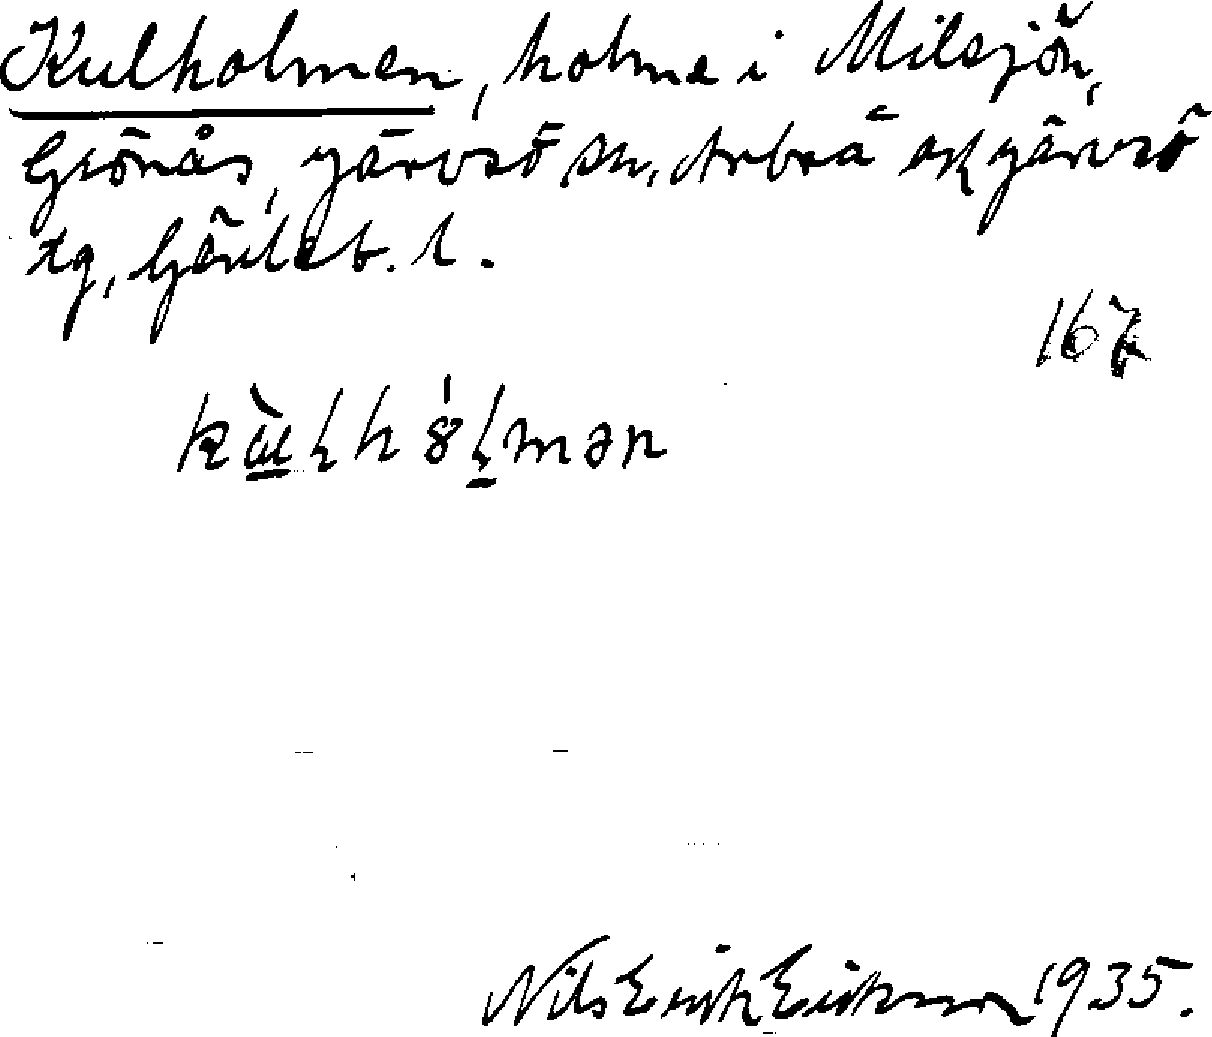 Kulholmen, holme i Milsjön,
Grönås, Järvsö sn, Arbrå ock Järvsö
tg, Gävleb. l.
167
Nils Erik Eriksson 1935.